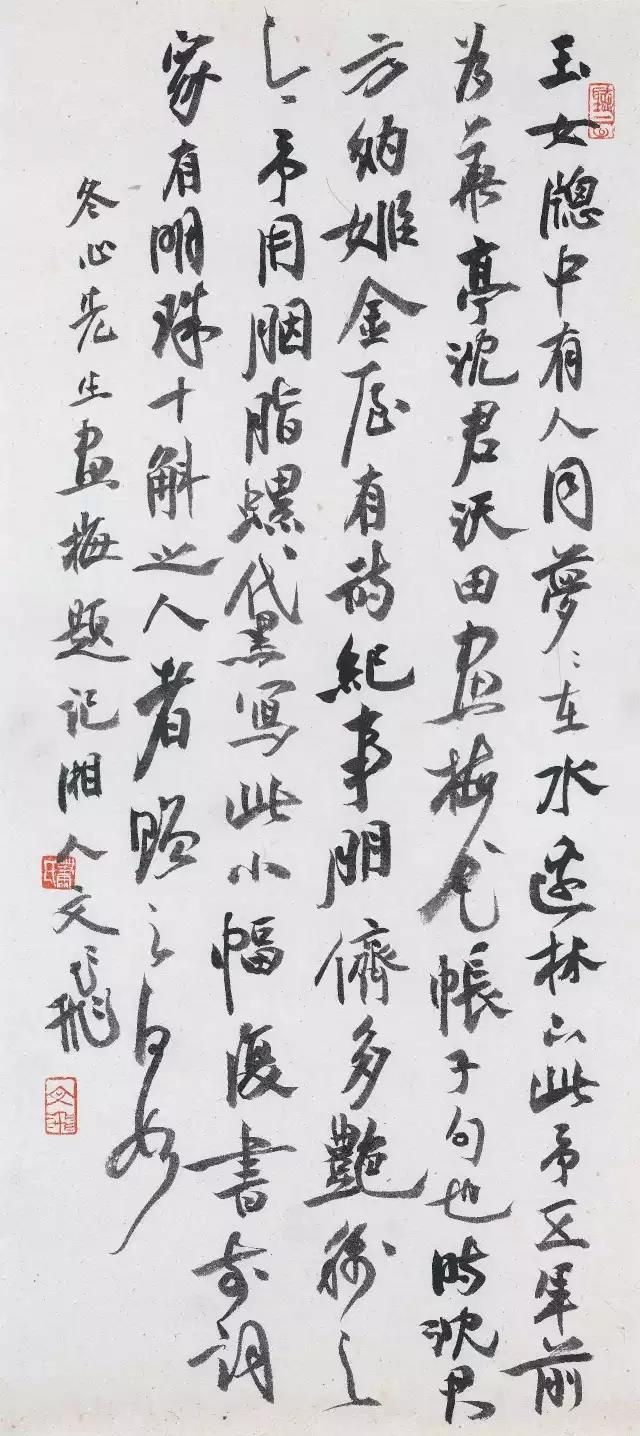 玉女牕中有人同夢〻在水邊林下此予五年前
為華亭沈君沃田畫梅花帳子句也時沈君
方納姬金屋有詩紀事朋儕多艷稱之
予用胭脂螺黛寫此小幅復書前詞
家有明珠十斛之人者之何如
冬心先生畫梅題記湘人文飛